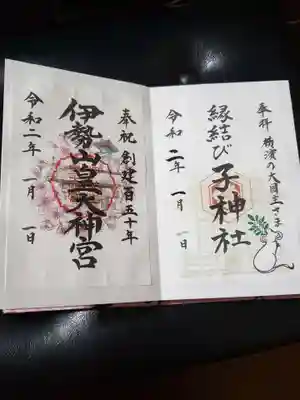 奉拝 横濱の大国主さま
縁結び
子神社
令和二年 一月 一日
奉祝 創建百五十年
伊勢山皇大神宮
令和二年 一月 一日